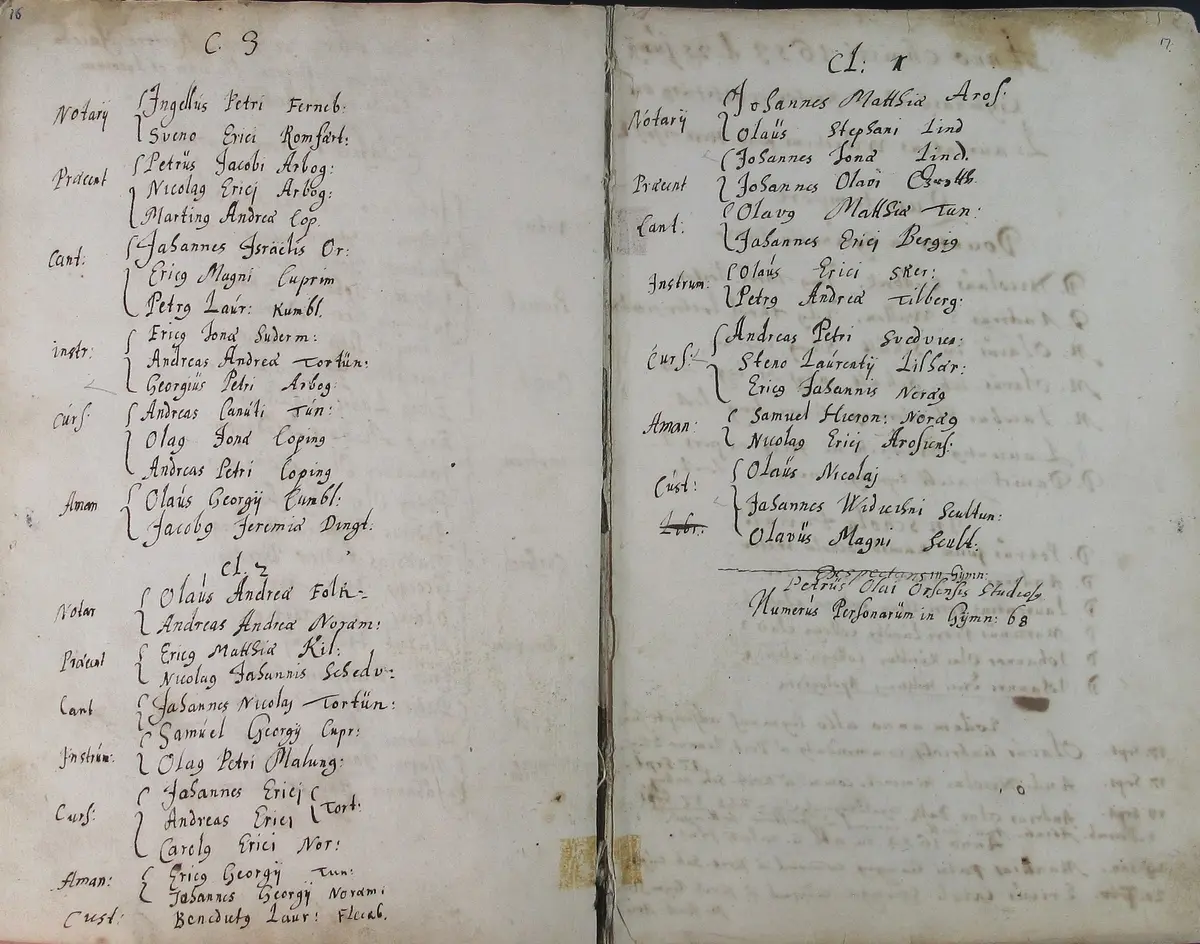 16
C. 3
Notarij Ingellus Petri Ferneb:
Sveno Erici Romfært:
Præcent Petrüs Jacobi Arbog:
Nicolag Ericj Arbog:
Marting Andreæ Cop
Cant: Jahannes Israëlis Or:
Ericg Magni Cuprim
Petrg Laúr: Kumbl.
instr: Ericg Jonæ Suderm:
Andreas Andreæ Tortün:
Georgiüs Petri Arbog:
Cúrs: Andreas Canúti Tún:
Olag Jonæ Coping
Andreas Petri Coping
Aman Olaús Georgÿ Cumbl:
Jacobg Jeremiæ Dingt:
Cl. 2
Notar Olaús Andreæ Folk:
Andreas Andreæ Noram:
Præcent Ericg Matthiæ Kil:
Nicolag Jahannis Schedv:
Cant Jahannes Nicolaj Tortün:
Samúel Georgÿ Cupr:
Jnstrúm: Olag Petri Malung:
Curs: Jahannes Ericj
Andreas Ericj Tort:
Carolg Erici Nor:
Aman: Ericg Georgÿ Tun:
Jahannes Georgÿ Noram:
Cust: Benedictg Laur: Flecab.
17
Cl: 1
Notarij Johannes Matthiæ Aros:
Olaüs Stephani Lind
Johannes Jonæ Lind.
Præcent Johannes Olavi
Cant: Olavg Matthiæ Tun:
Jahannes Ericj Bergig
Jnstrum: Olaús Erici Sker:
Petrg Andreæ Tilberg:
Curs: Andreas Petri Svedvien:
Steno Laúrentÿ Lilhær:
Ericg Jahannis Noræg
Aman: Samuel Hieron: Noræg
Nicolag Ericj Arosiens:
Cúst: Olaüs Nicolaj
Jahannes Widichni Scultun:
Libr: Olavüs Magni Scult:
Exspectans in Gymn:
Petrüs Olai Orsensis Studios
Numerús Personarüm in Gÿmn: 68